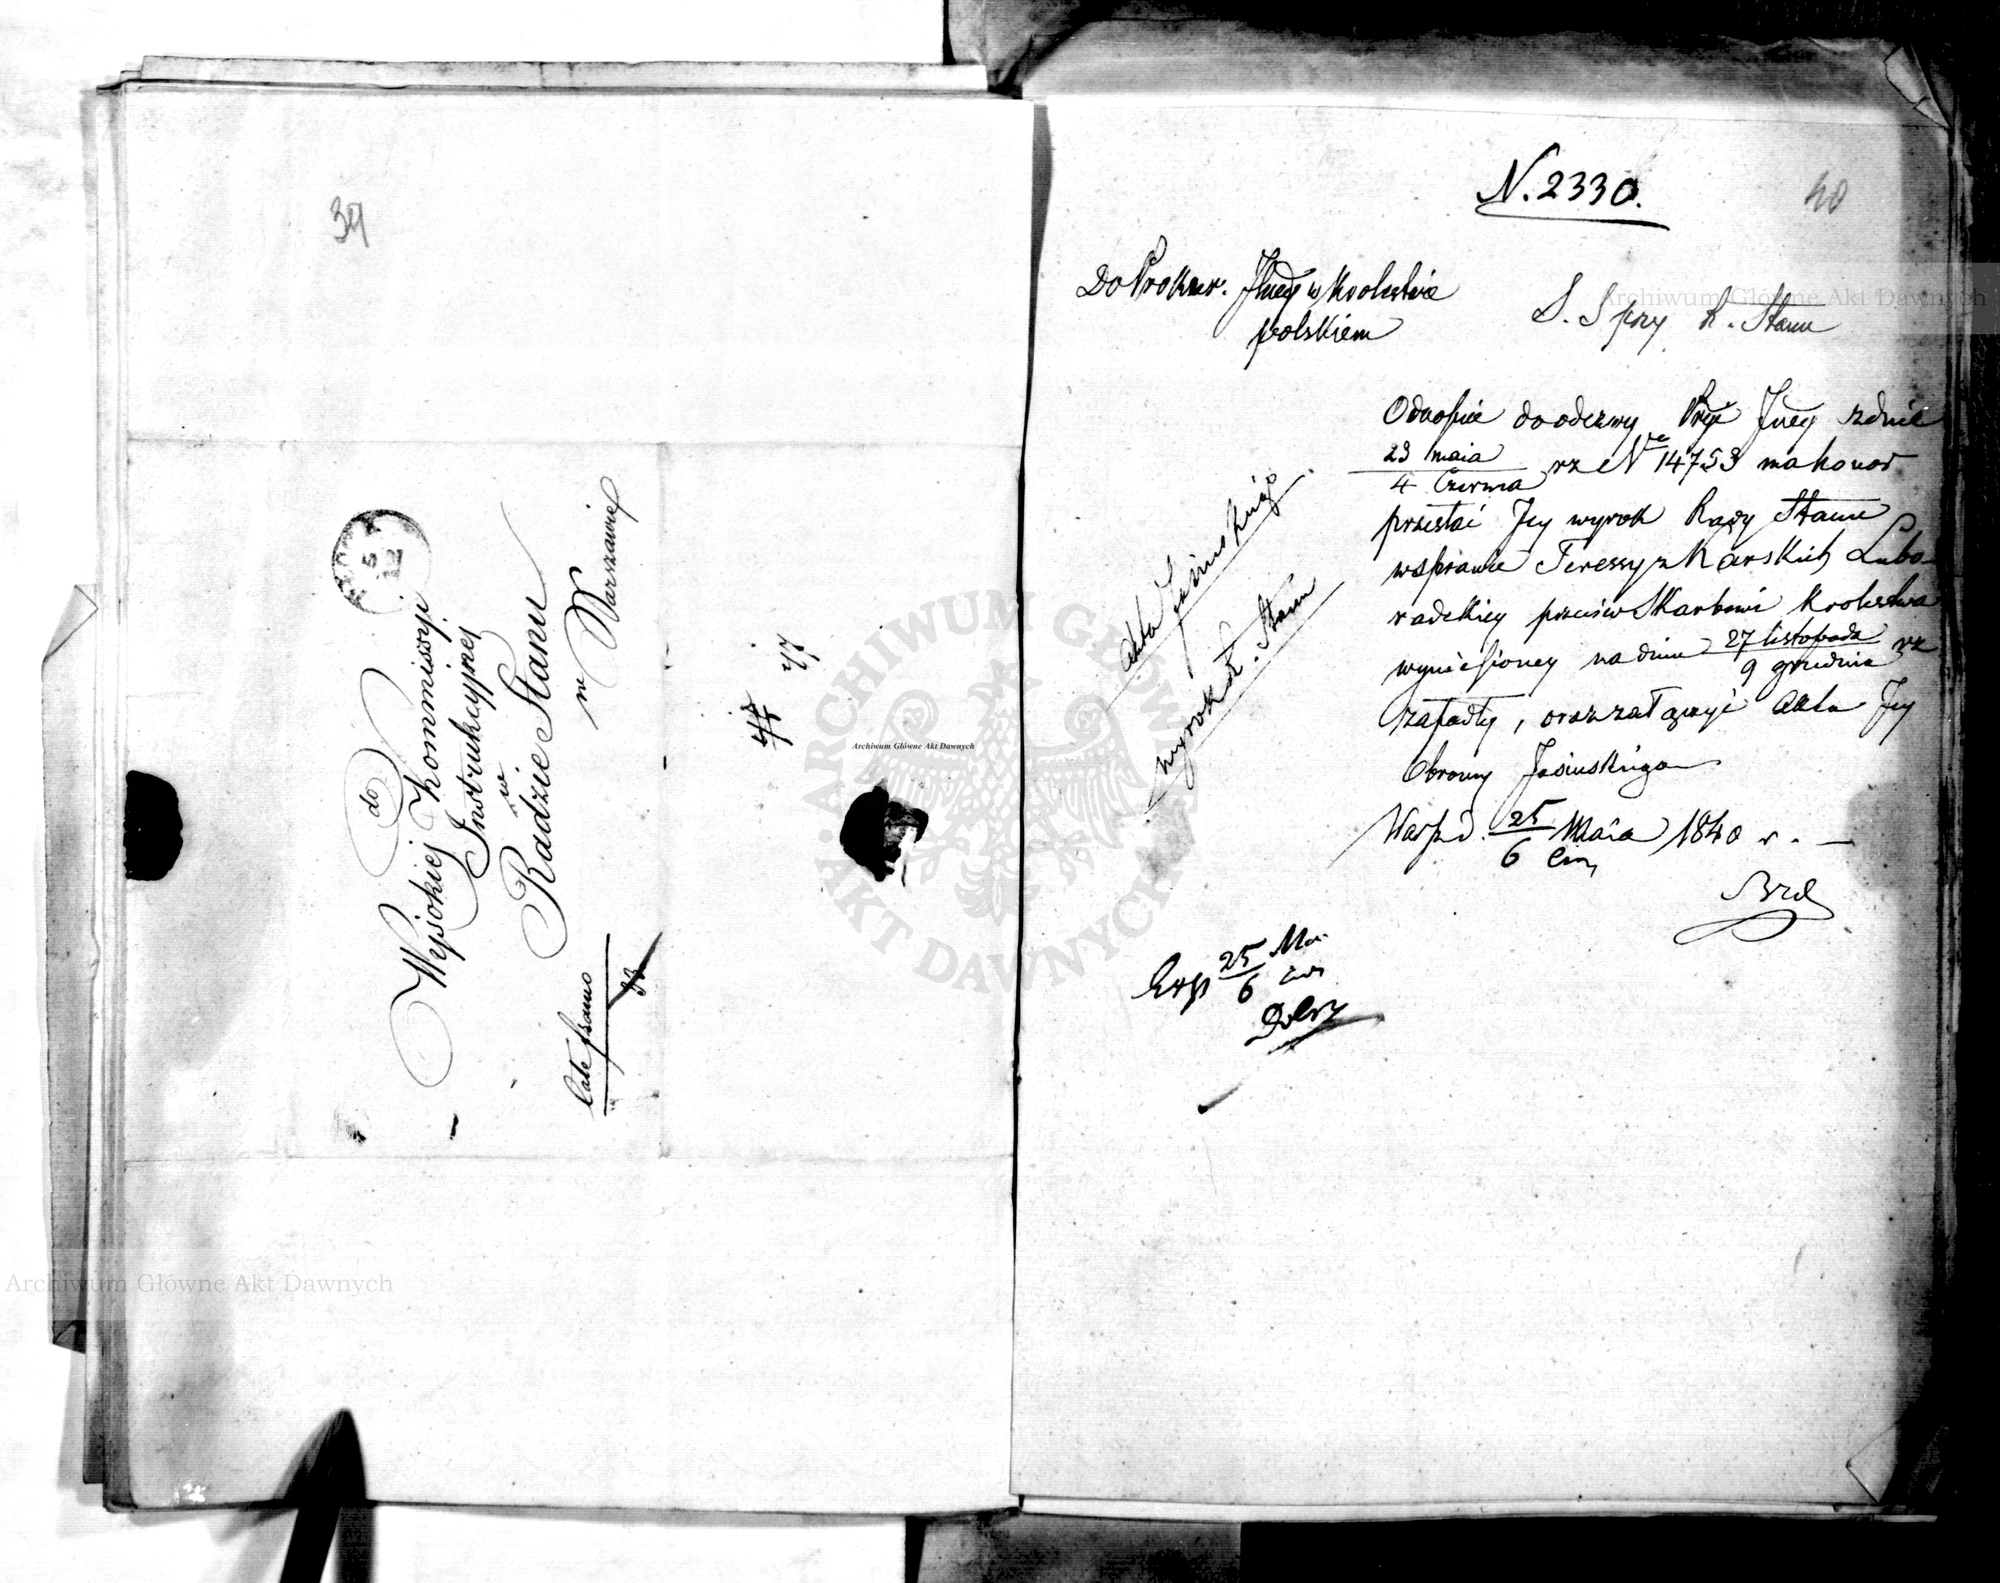 39
do
Wysokiej Kommissyi
Instrukcyjnej
w
Radzie Stanu
w Warszawie
Całe franco
47
N. 2330.
40
Do Prokur. Jlney w Krolestwie
polskiem
S. S przy R. Stanu
Odnośnie do odezwy Jney zdnia
23 maia
4 Czerwca rz No 14753 ma honor
przesłać Jey wyrok Rady Stanu
wsprawie Teressy z Karskich Lubo-
radzkiey przeciw Skarbowi Krolestwa
wyniesioney na dniu 27 listopada
9 grudnia rz
zapadły, oraz załączyć Akta Jey
Obrony Jasinskiego
Warsz d. 25 Maia 1840 r. —
6 Czer
Akta Jasinskiego
wyrok R. Stanu
Exp 25 Ma
6 czer
Archiwum Główne Akt Dawnych
ARCHIWUM GŁÓWNE AKT DAWNYCH
Archiwum Główne Akt Dawnych
Archiwum Główne Akt Dawnych